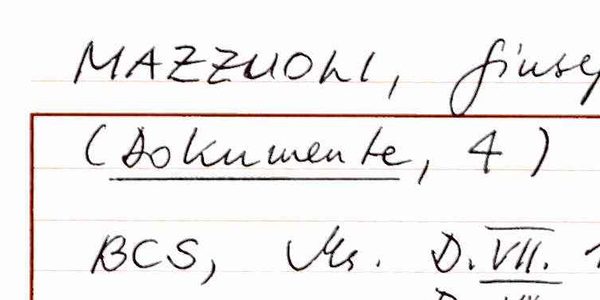 MAZZUOLI, Giusep
(Dokumente, 4)
BCS, Ms. D. VII. 1
D. VII